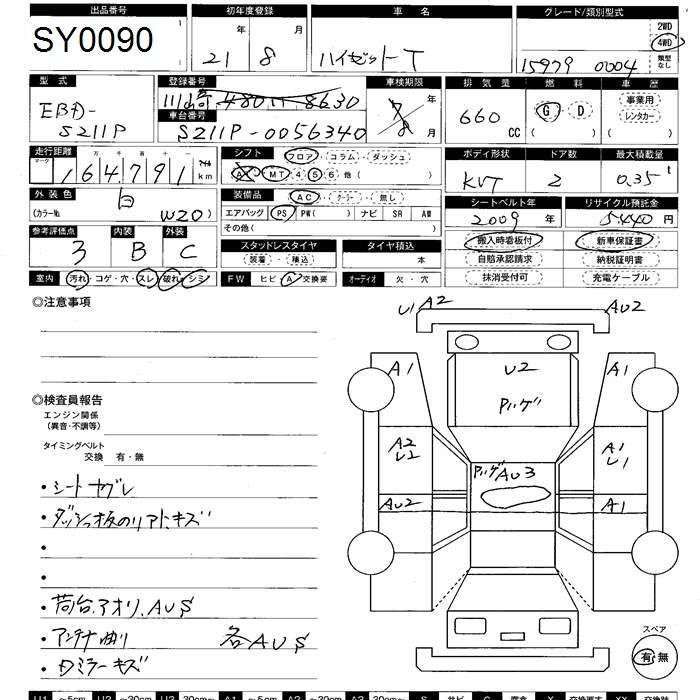 出品番号 初年度登録 車名 グレード/類別型式
SY0090 21年 8月 ハイゼットT 15979 0004 2WD 4WD 類型なし
型式 登録番号 車検期限 排気量 燃料 車歴
EBD-S211P 川崎 480 け 8630 年 月 660 CC G D ( ) 事業用 レンタカー ( )
車台番号
S211P-0056340
走行距離 シフト フロア コラム ダッシュ ボディ形状 ドア数 最大積載量
マーク 十万千百十 164791 km AT MT 4 5 6 他 ( ) KVT 2 0.35 t
外装色 装備品 AC クーラー 無し シートベルト年 リサイクル預託金
白 エアバッグ PS PW( ) ナビ SR AW 2009年 5440円
(カラーNo. W20) その他( )
参考評価点 内装 外装 スタッドレスタイヤ タイヤ積込 搬入時看板付 新車保証書
3 B C 装着・積込 本 自賠承認請求 納税証明書
室内 汚れ・コゲ・穴・スレ・破れ・シミ FW ヒビ・A・交換要 オーディオ 欠・穴 抹消受付可 充電ケーブル
◎注意事項
U1 A2 AU2
A1 U2 A1
パリゲ
◎検査員報告
エンジン関係
(異音・不調等)
タイミングベルト
交換 有・無
A2 パリゲ AU3 A1
U2 U1
・シートヤブレ
AU2 A1
・ダッシュ板のリアトキズ
・
・
・荷台.アオリ.AUS
・アンテナ曲り 各AUS
・Dミラーキズ
スペア
有・無
U1 ~5cm U2 ~30cm U3 30cm~ A1 ~5cm A2 ~30cm A3 30cm~ S サビ C 腐食 X 交換要 XX 交換跡